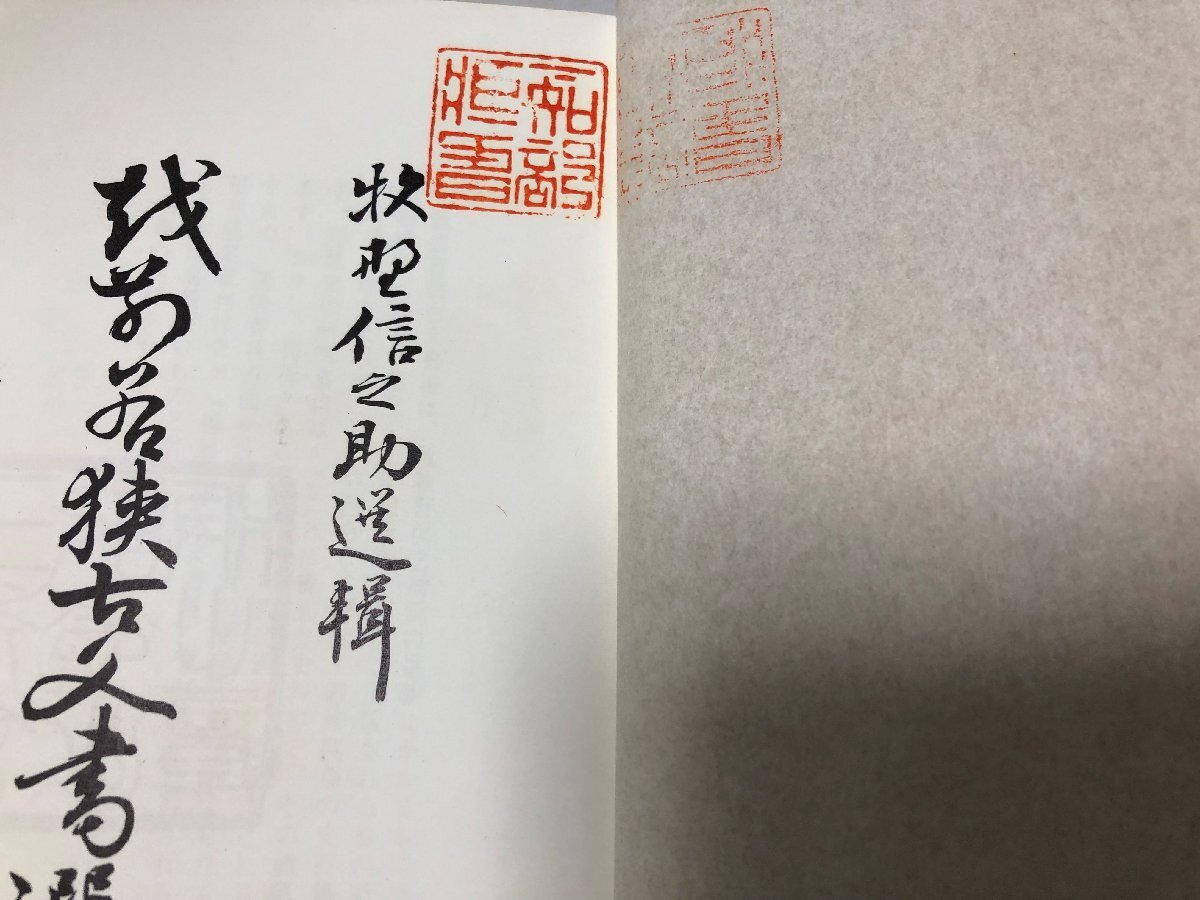 蔵書
牧野信之助選輯
越前若狭古文書選